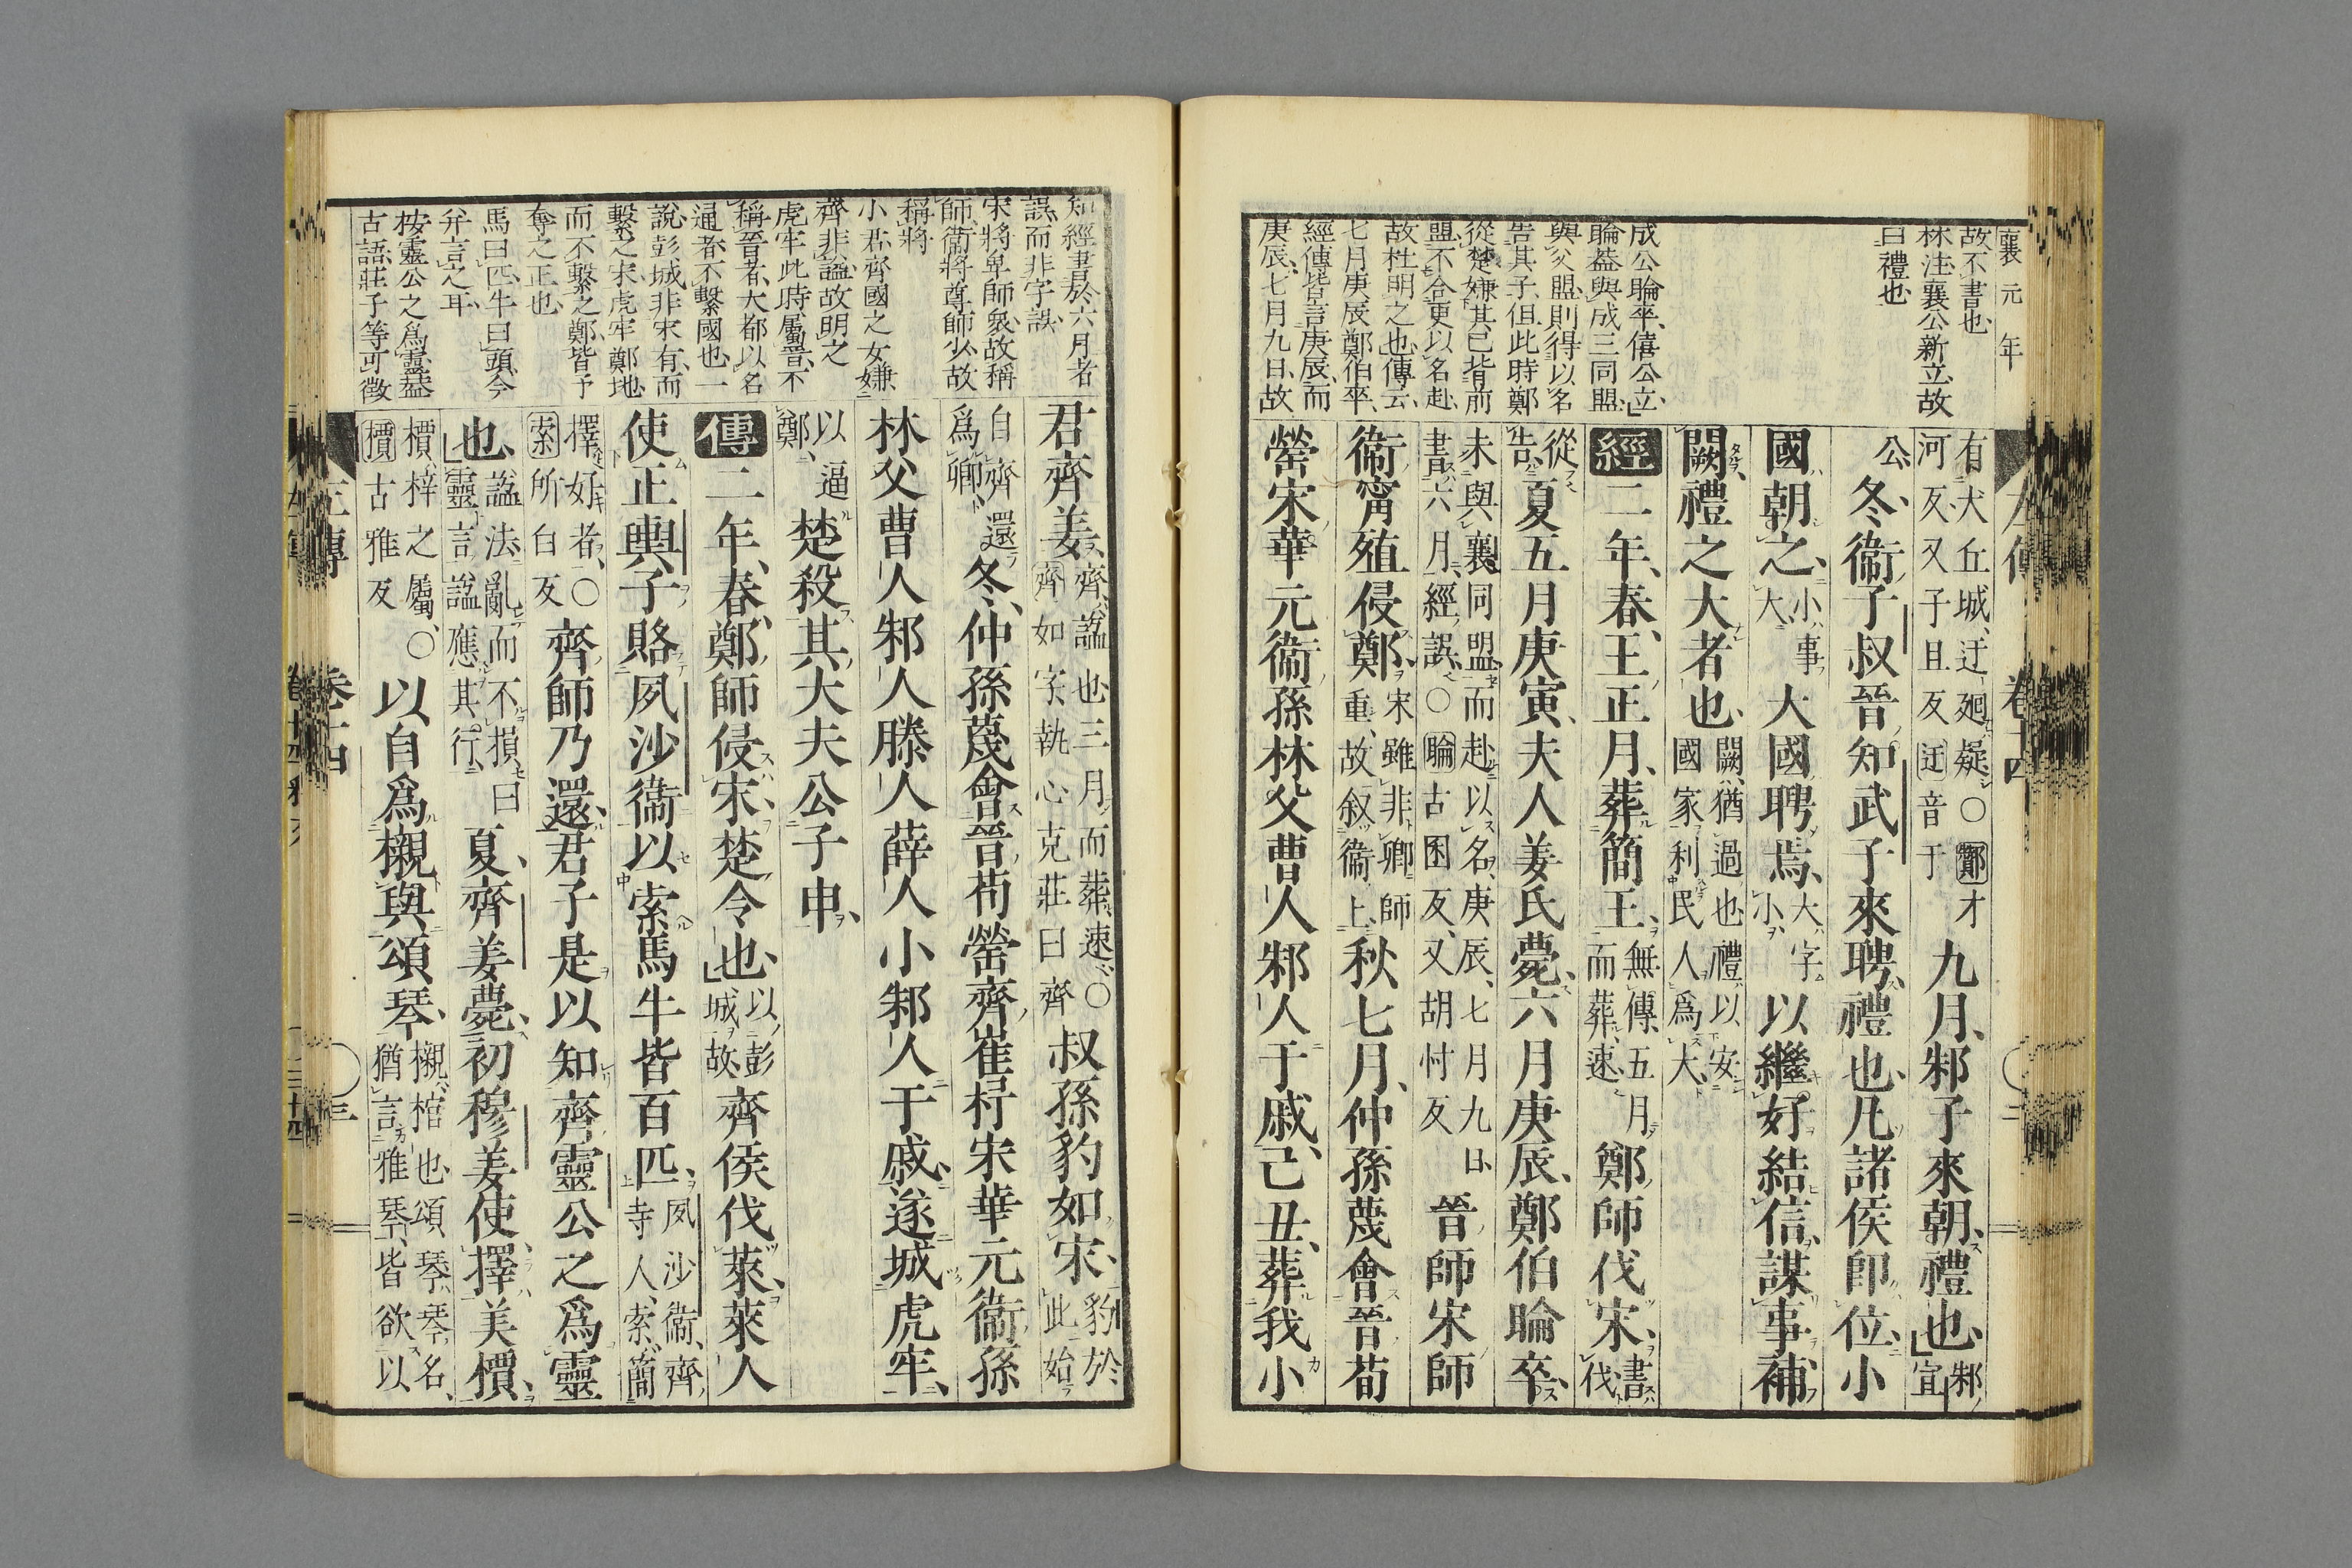 襄元年
故不書也
林注襄公新立故
曰禮也
成公睔卒僖公立
睔蓋與成三同盟
與父盟則得以名
告其子但此時鄭
從楚嫌其已背前
盟不合更以名赴
故杜明之也傳云
七月庚辰鄭伯卒
經傳皆言庚辰而
庚辰七月九日故
左傳 卷十四 二
有犬丘城迂廻疑〇酇才
河反又子且反迂音于
九月邾子來朝禮也
邾宣
公
冬衞子叔晉知武子來聘禮也凡諸侯卽位小
國朝之
小事
大
大國聘焉
大字
小
以繼好結信謀事補
闕禮之大者也
闕猶過也禮以安
國家利民人爲大
經二年春王正月葬簡王
無傳五月
而葬速
鄭師伐宋
書
伐
從
告
夏五月庚寅夫人姜氏薨六月庚辰鄭伯睔卒
未與襄同盟而赴以名庚辰七月九日
書六月經誤〇睔古困反又胡忖反
晉師宋師
衞甯殖侵鄭
宋雖非卿師
重故叙衞上
秋七月仲孫蔑會晉荀
罃宋華元衞孫林父曹人邾人于戚己丑葬我小
知經書於六月者
誤而非字誤
宋將卑師衆故稱
師衞將尊師少故
稱將
小君齊國之女嫌
齊非謚故明之
虎牢此時屬晉不
稱晉者大都以名
通者不繫國也一
說彭城非宋有而
繫之宋虎牢鄭地
而不繫之鄭皆予
奪之正也
馬曰匹牛曰頭今
弁言之耳
按靈公之爲靈蓋
古語莊子等可徵
君齊姜
齊謚也三月而葬速〇
齊如字執心克莊曰齊
叔孫豹如宋
豹於
此始
自齊還
爲卿
冬仲孫蔑會晉荀罃齊崔杼宋華元衞孫
林父曹人邾人滕人薛人小邾人于戚遂城虎牢
以逼
鄭
楚殺其大夫公子申
傳二年春鄭師侵宋楚令也
以彭
城故
齊侯伐萊萊人
使正輿子賂夙沙衞以索馬牛皆百匹
夙沙衞齊
寺人索簡
擇好者〇
索所白反
齊師乃還君子是以知齊靈公之爲靈
也
謚法亂而不損曰
靈言謚應其行
夏齊姜薨初穆姜使擇美檟
檟梓之屬〇
檟古雅反
以自爲櫬與頌琴
櫬棺也頌琴琴名
猶言雅琴皆欲以
左傳 卷十四 三